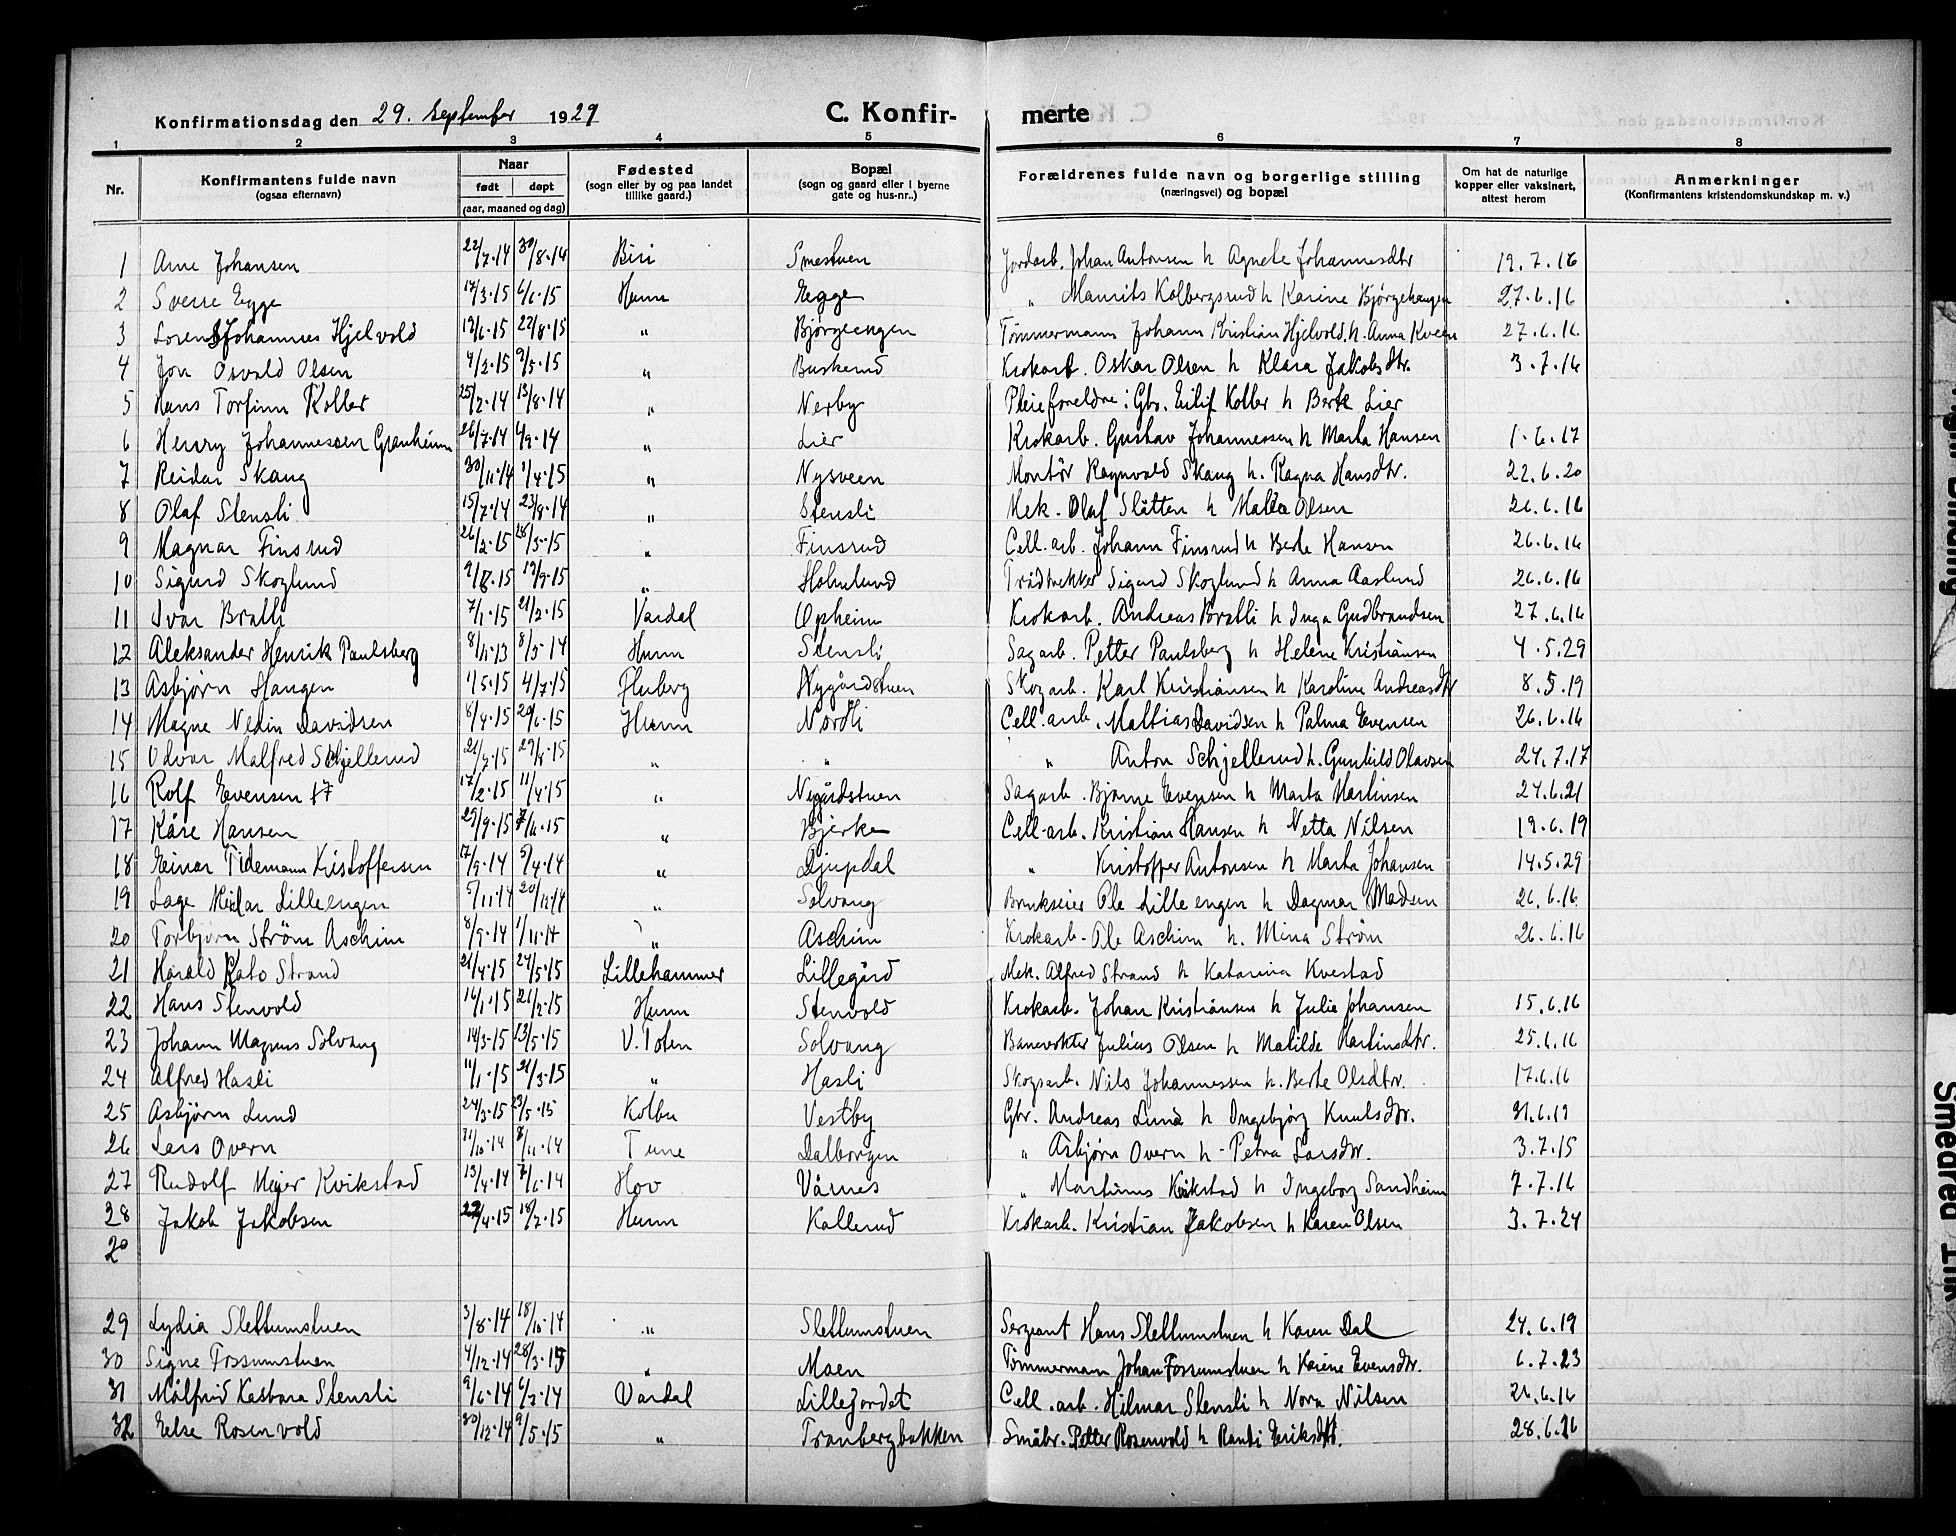 Konfirmationsdag den 29. September 1929 C. Konfirmerte
1 2 3 4 5 6 7 8
Nr. Konfirmantens fulde navn (ogsaa efternavn) Naar født døpt (aar, maaned og dag) Fødested (sogn eller by og paa landet tillike gaard.) Bopæl (sogn og gaard eller i byerne gate og hus-nr..) Forældrenes fulde navn og borgerlige stilling (næringsvei) og bopæl Om hat de naturlige kopper eller vaksinert, attest herom Anmerkninger (Konfirmantens kristendomskundskap m. v.)
1 Arne Johansen 22/7.14 30/8.14 Biri Smestuen Jordarb. Johan Antonsen h Agnete Johannesdtr 19.7.16
2 Sverre Egge 17/3.15 6/6.15 Hunn Egge " Maurits Kolbergsrud h Karine Bjørgehaugen 27.6.16
3 Lorents Johannes Hjelvold 12/6.15 22/8.15 " Bjørgeengen Tømmermann Johann Kristian Hjelvold h. Anna Kveen 27.6.16
4 Jon Osvald Olsen 4/2.15 9/5.15 " Buskerud Krokarb. Oskar Olsen h Klara Jakobsdtr. 3.7.16
5 Hans Torfinn Koller 25/2.14 13/8.14 " Nerby Pleieforeldre: Gbr. Eilif Koller h Berte Lier
6 Henry Johannessen Granheim 26/7.14 6/9.14 " Lier Krokarb. Gustav Johannessen h Marta Hansen 1.6.17
7 Reidar Skaug 30/11.14 1/4.15 " Nysveen Montør Ragnvald Skaug h. Ragna Hansdtr. 22.6.20
8 Olaf Stensli 15/7.14 23/8.14 " Stensli Mek. Olaf Slåtten h Malla Olsen 26.6.16
9 Magnar Finsrud 26/2.15 28/3.15 " Finsrud Cell.arb. Johann Finsrud h Berte Hansen 26.6.16
10 Sigurd Skoglund 9/8.15 19/9.15 " Holmlund Trådtrekker Sigurd Skoglund h Anna Aaslund 26.6.16
11 Ivar Bratli 7/1.15 21/2.15 Vardal Opheim Krokarb. Andreas Bratli h Inga Gudbrandsen 27.6.16
12 Aleksander Henrik Paulsberg 8/11.13 8/3.14 Hunn Stensli Sagarb. Petter Paulsberg h Helene Kristiansen 4.5.29
13 Asbjørn Haugen 1/5.15 4/7.15 Fluberg Nygårdstuen Skogarb. Karl Kristiansen h Karoline Andreasdtr 8.5.19
14 Magne Nedin Davidsen 8/4.15 20/6.15 Hunn Nordli Cell.arb. Mattias Davidsen h Palma Evensen 26.6.16
15 Odvar Malfred Schjellerud 21/7.15 29/8.15 " " " Anton Schjellerud h. Gunhild Olavsen 24.7.17
16 Rolf Evensen 17/2.15 11/4.15 " Nygårdstuen Sagarb. Bjarne Evensen h Marta Martinsen 24.6.21
17 Kåre Hansen 29/9.15 7/11.15 " Bjerke Cell-arb. Kristian Hansen h Netta Nilsen 19.6.19
18 Einar Tidemann Kristoffersen 17/9.14 5/4.14 " Djupdal " Kristoffer Antonsen h Marta Johansen 14.5.29
19 Lage Lilleengen 5/11.14 20/12.14 " Solvang Brukseier Ole Lilleengen h Dagmar Madsen 26.6.16
20 Torbjørn Strøm Aschim 8/9.14 1/11.14 " Aschim Krokarb. Ole Aschim h. Mina Strøm 26.6.16
21 Harald Kato Strand 21/4.15 24/5.15 Lillehammer Lillegård Mek. Alfred Strand h Katarina Kvestad
22 Hans Stenvold 16/1.15 21/2.15 Hunn Stenvold Krokarb. Johan Kristiansen h Julie Johansen 15.6.16
23 Johann Magnus Solvang 14/3.15 13/5.15 V. Toten Solvang Banevokter Julius Olsen h Matilde Martinsdtr. 25.6.16
24 Alfred Hasli 11/1.15 21/3.15 " Hasli Skogsarb. Nils Johannessen h. Berte Olsdtr. 17.6.16
25 Asbjørn Lund 24/3.15 23/5.15 Kolbu Vestby Gbr. Andreas Lund h Ingebjørg Knutsdtr. 21.6.19
26 Lars Overn 31/10.14 8/11.14 Tune Dalborgen " Asbjørn Overn h. Petra Larsdtr. 3.7.15
27 Rudolf Meier Kvikstad 13/4.14 7/6.14 Hov Vårnes " Martinus Kvikstad h Ingeborg Sandheim 7.7.16
28 Jakob Jakobsen 22/4.15 18/7.15 Hunn Kallerud Krokarb. Kristian Jakobsen h Karen Olsen 3.7.24
29 Lydia Slettumstuen 3/8.14 18/10.14 " Slettumstuen Sergeant Hans Slettumstuen h Karen Dal 24.6.19
30 Signe Fossumstuen 4/12.14 28/3.15 " Moen Tømmermann Johan Fossumstuen h Karine Evensdtr. 6.7.23
31 Målfrid Kasbara Stensli 9/6.14 6/3.14 Vardal Lillejordet Cell.arb. Hilmar Stensli h Nora Nilsen 26.6.16
32 Else Rosenvold 30/12.14 9/5.15 " Tranbergbakken Småbr. Petter Rosenvold h Randi Eriksdtr. 28.6.26
Smeared Ink